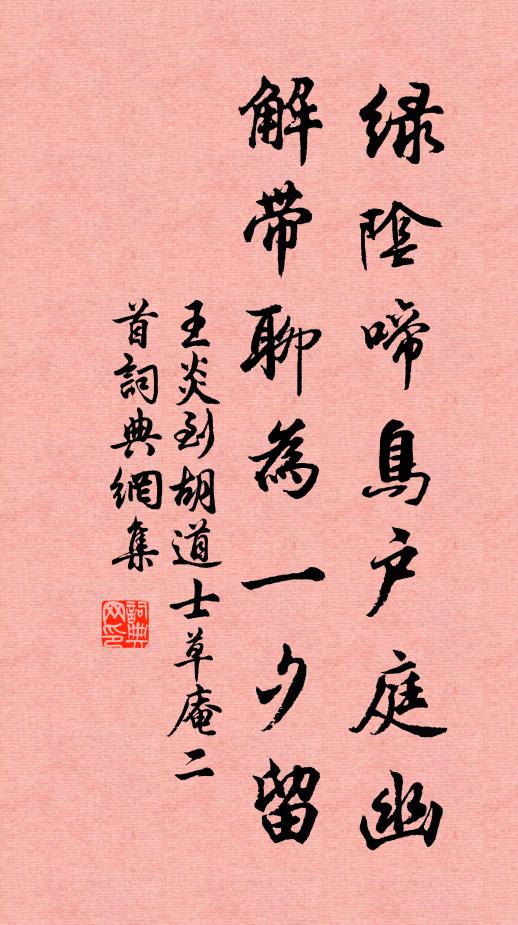 绿陰啼鳥户庭幽
解带聊為一夕留
王炎到胡道士草庵二
首詞典網集
詞典
网印